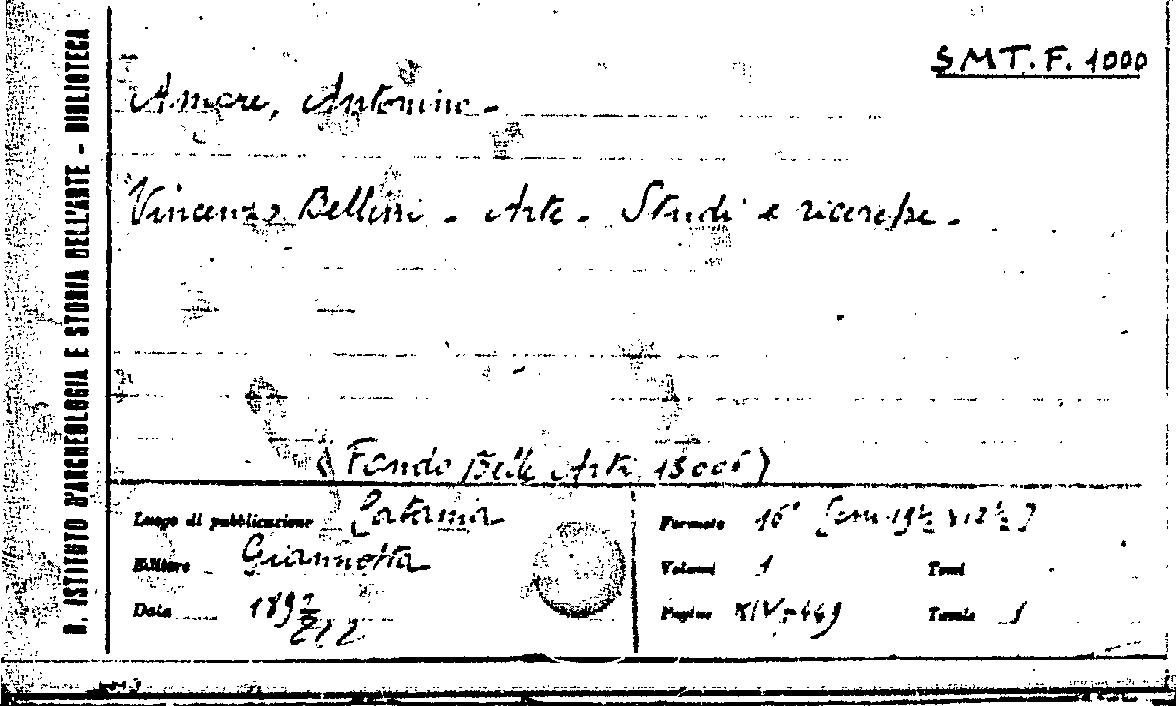 S.M.T. F. 1000
Amore, Antonino -
Vincenzo Bellini - Arte - Studi e ricerche -
(Fondo Belle Arti
Luogo di pubblicazione Catania
Editore Giannotta
Data 189
Formato 16° [cm. 19½ x 12½]
Volumi 1
Tomi
Pagine XIV-449
Tavole 1
R. ISTITUTO D'ARCHEOLOGIA E STORIA DELL'ARTE - BIBLIOTECA